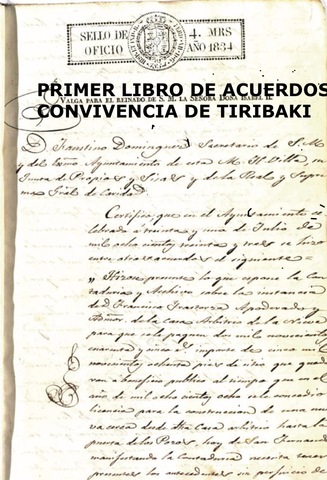 SELLO DE OFICIO
4. MRS AÑO 1834
PRIMER LIBRO DE ACUERDOS
VALGA PARA EL REINADO DE S. M. LA SEÑORA DOÑA ISABEL II.
CONVIVENCIA DE TIRIBAKI
D. Faustino Dominguez Secretario de S. M.
y del Ayuntamiento de esta M. H. Villa, su
Junta de Propios y Sisas y de la Real y Supre
ma Gral de Caridad
Certifico, que en el Ayuntamiento ce
lebrado á treinta y uno de Julio de
mil ocho cientos treinta y tres se hizo
entre otros acuerdos el siguiente =
Hizose presente lo que expone la Con
taduria y Archivo sobre la instancia
de D. Francisco Apoderado y
Admor. de la Casa Arbitrio de la Nieve
para que se le paguen dos mil novecientos
cuarenta y cinco r. importe de cinco mil
novecientos ochenta pies de sitio que quedá
ron a beneficio publico al tiempo que en el
año de mil ocho cientos ocho se le concedio
licencia para la construccion de una nue
va cerca desde dha Casa arbitrio hasta la
puerta de los Pozos, hoy de San Fernando
manifestando la Contaduria necesita tener
presentes los antecedentes sin perjuicio de